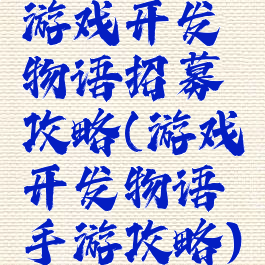 游戏开发
物语招募
攻略(游戏
开发物语
手游攻略)